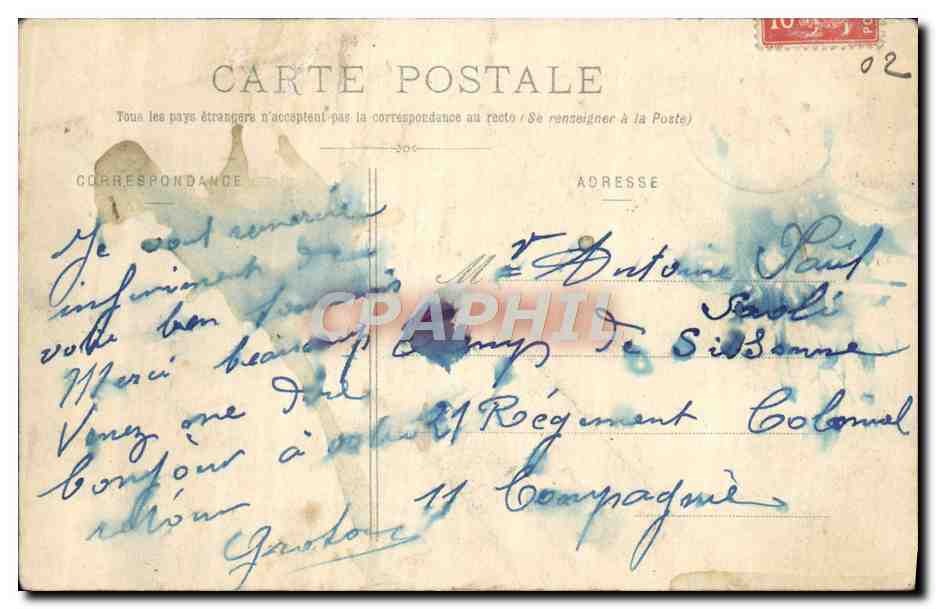 10
02
CARTE POSTALE
Tous les pays étrangers n'acceptent pas la correspondance au recto (Se renseigner à la Poste)
CORRESPONDANCE
Je vous remercie
infiniment de
votre bon
Merci beaucoup
Venez me dire
bonjour à votre
retour
ADRESSE
Mr Antoine Paul
Paoli
Camp de Sissonne
21 Régiment Colonial
11 Compagnie
CPAPHIL